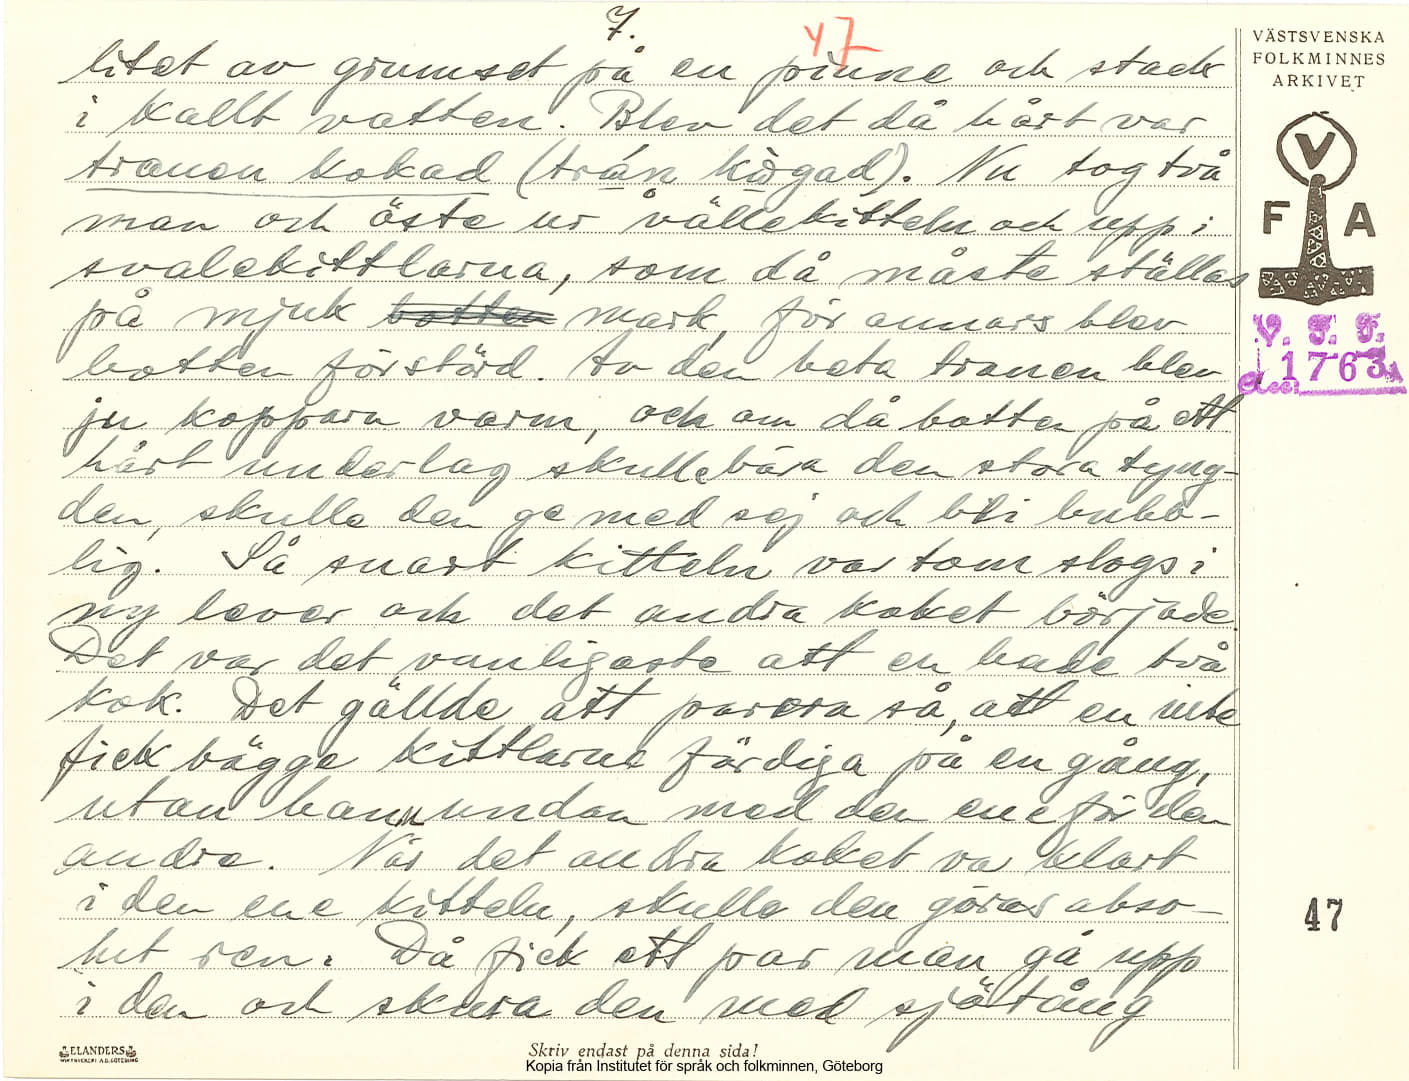 7.
47
litet av grumset på en pinne och stack
i kallt vatten. Blev det då hårt var
tranen kokad (trán kògad). Nu tog två
man och öste ur vällekitteln och upp i
svalekittlarna, som då måste ställas
på mjuk botten mark, för annars blev
botten förstörd. Av den heta tranen blev
ju kopparn varm, och om då botten på ett
hårt underlag skulle bära den stora tyng-
den, skulle den ge med sej och bli bubb-
lig. Så snart kitteln var tom slogs i
ny lever och det andra koket började.
Det var det vanligaste att en hade två
kok. Det gällde att parera så, att en inte
fick bägge kittlarne färdiga på en gång,
utan hann undan med den ene för den
andre. När det andra koket va klart
i den ene kitteln, skulle den göras abso-
lut ren. Då fick ett par man gå upp
i den och skura den med sjötång
VÄSTSVENSKA
FOLKMINNES
ARKIVET
V
F A
V. F. F.
Acc: 1763
47
ELANDERS
Skriv endast på denna sida!
Kopia från Institutet för språk och folkminnen, Göteborg